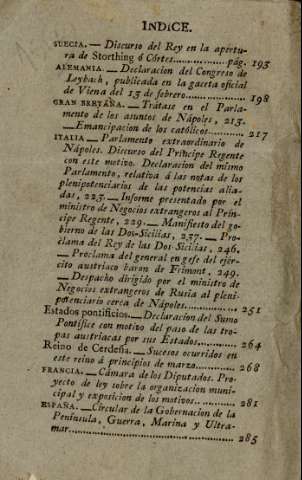 INDICE.
SUECIA. — Discurso del Rey en la apertu-
ra de Storthing ó Córtes..............pág. 193
ALEMANIA. — Declaracion del Congreso de
Leybach, publicada en la gaceta oficial
de Viena del 13 de febrero................. 198
GRAN BRETAÑA. — Trátase en el Parla-
mento de los asuntos de Nápoles, 213.
— Emancipacion de los católicos............ 217
ITALIA — Parlamento extraordinario de
Nápoles. Discurso del Príncipe Regente
con este motivo. Declaracion del mismo
Parlamento, relativa á las notas de los
plenipotenciarios de las potencias alia-
das, 223. — Informe presentado por el
ministro de Negocios extrangeros al Prín-
cipe Regente, 229. — Manifiesto del go-
bierno de las Dos-Sicilias, 237. — Pro-
clama del Rey de las Dos-Sicilias, 246.
— Proclama del general en gefe del ejér-
cito austriaco baron de Frimont, 249.
— Despacho dirigido por el ministro de
Negocios extrangeros de Rusia al pleni-
potenciario cerca de Nápoles............. 251
Estados pontificios. — Declaracion del Sumo
Pontífice con motivo del paso de las tro-
pas austriacas por sus Estados........... 264
Reino de Cerdeña. — Sucesos ocurridos en
este reino á principios de marzo......... 268
FRANCIA. — Cámara de los Diputados. Pro-
yecto de ley sobre la organizacion muni-
cipal y exposicion de los motivos......... 281
ESPAÑA. — Circular de la Gobernacion de la
Península, Guerra, Marina y Ultra-
mar........................................ 285